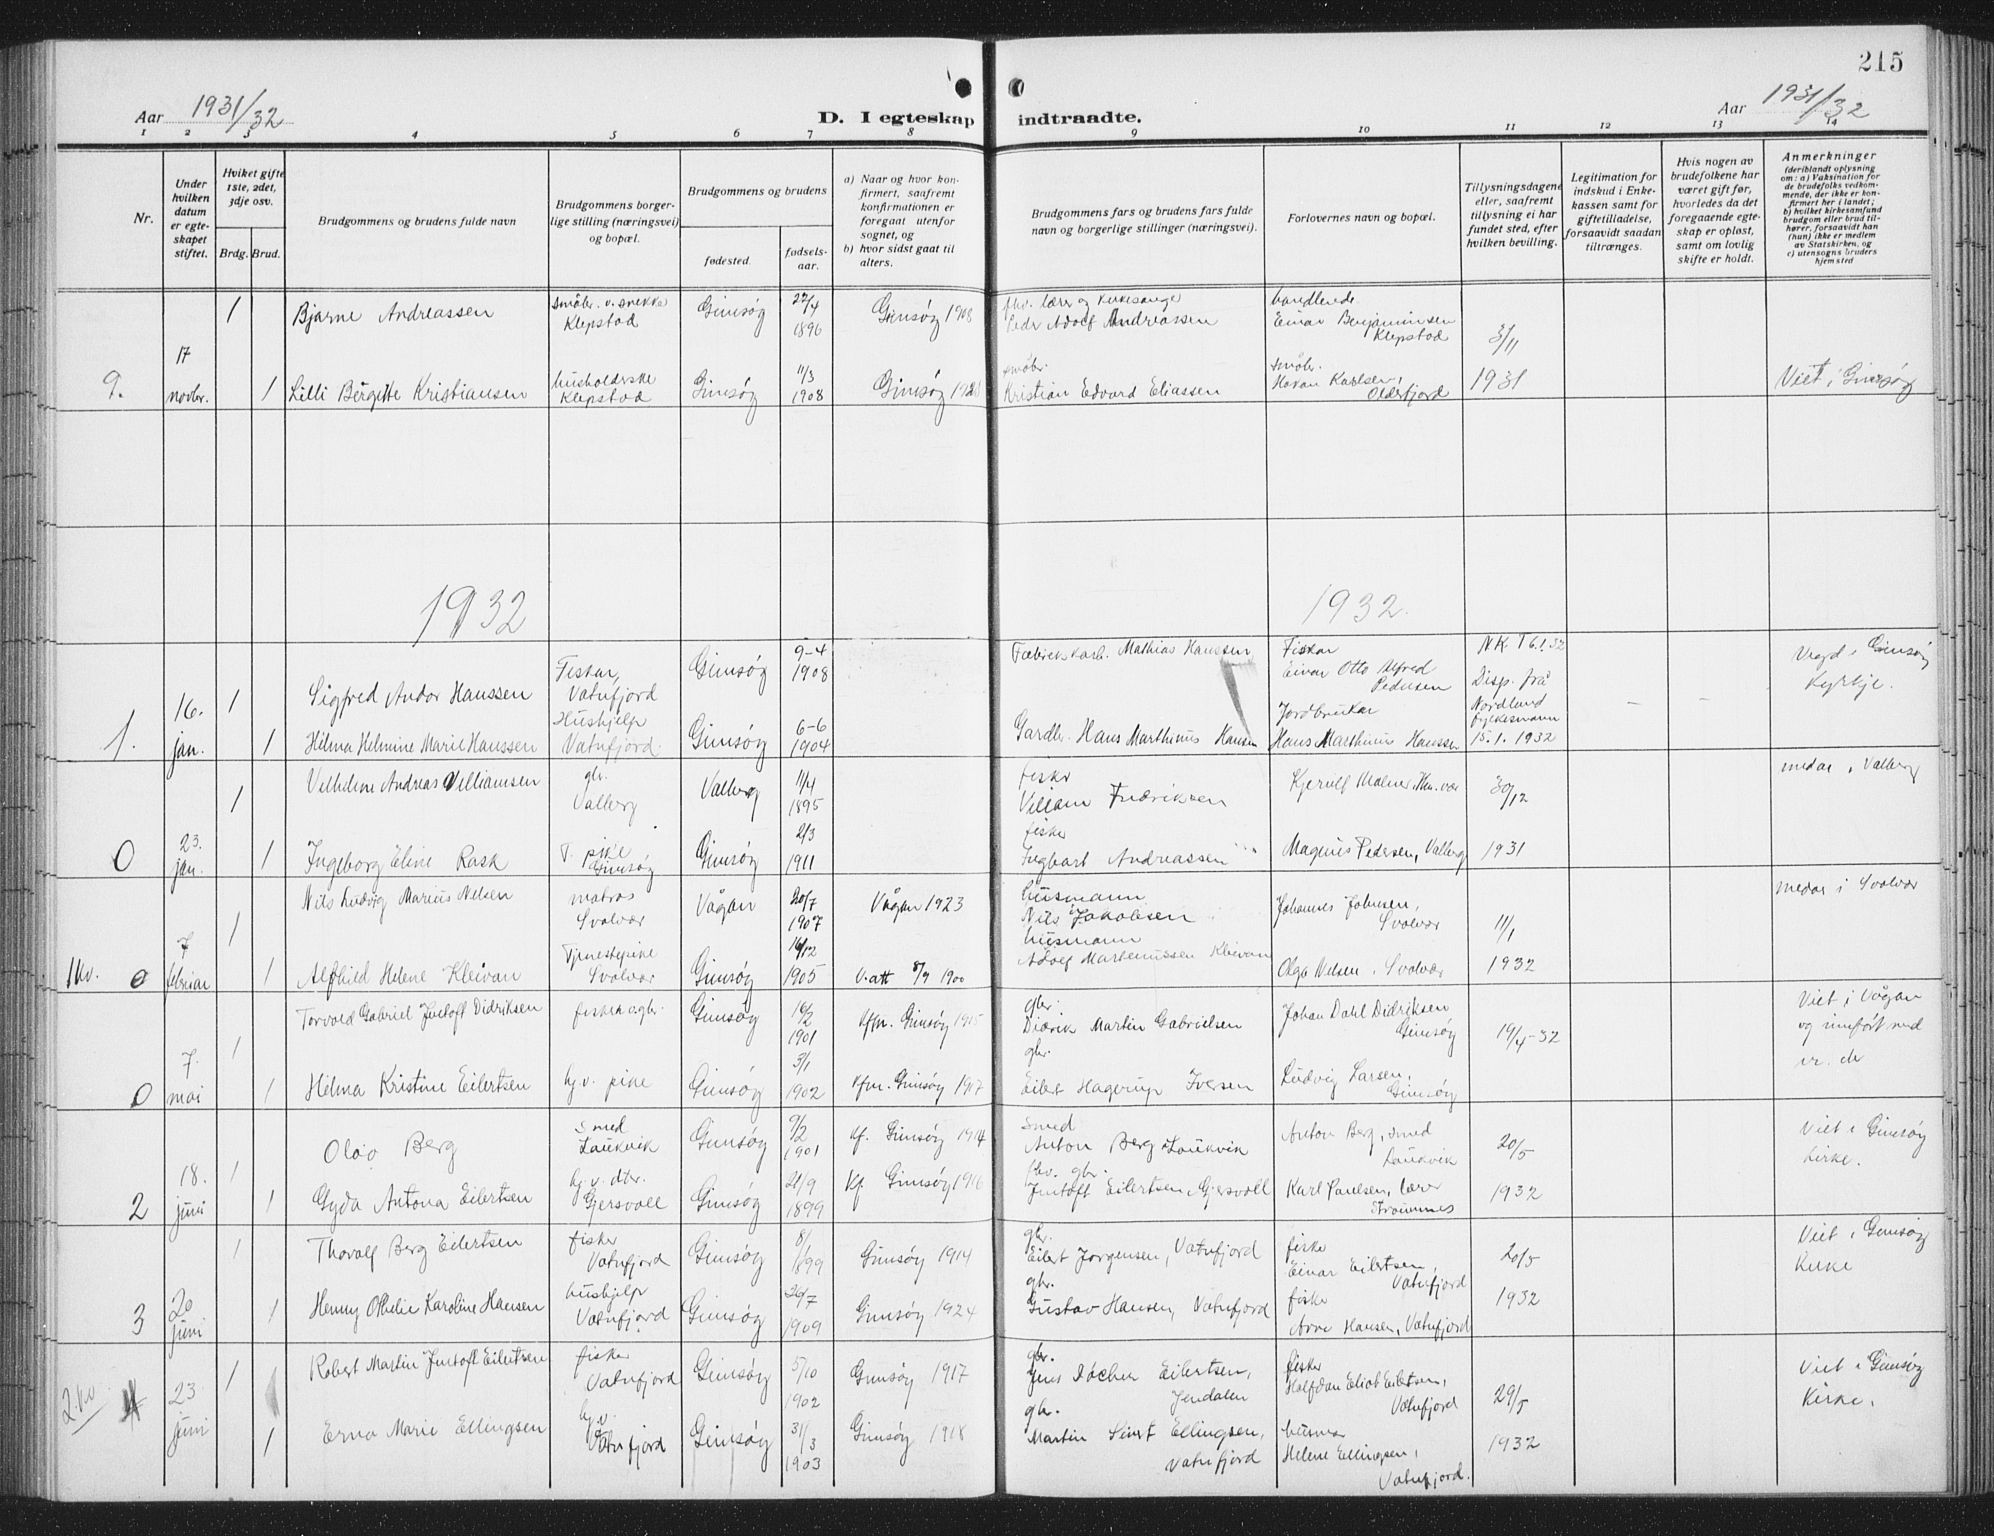 215
Aar 1931/32
D. I egteskap indtraadte.
Aar 1931/32
1 2 3 4 5 6 7 8 9 10 11 12 13 14
Nr.
Under hvilken datum er egteskapet stiftet.
Hviket gifte 1ste, 2det, 3dje osv.
Brdg. Brud.
Brudgommens og brudens fulde navn
Brudgommens borgerlige stilling (næringsvei) og bopæl.
Brudgommens og brudens
fødested.
fødselsaar.
a) Naar og hvor konfirmert, saafremt konfirmationen er foregaat utenfor sognet, og
b) hvor sidst gaat til alters.
Brudgommens fars og brudens fars fulde navn og borgerlige stillinger (næringsvei).
Forlovernes navn og bopæl.
Tillysningsdagene eller, saafremt tillysning ei har fundet sted, efter hvilken bevilling.
Legitimation for indskud i Enkekassen samt for giftetilladelse, forsaavidt saadan tiltrænges.
Hvis nogen av brudefolkene har været gift før, hvorledes da det foregaaende egteskap er opløst, samt om lovlig skifte er holdt.
Anmerkninger
(deriblandt oplysning om: a) Vaksination for de brudefolks vedkommende, der ikke er konfirmert her i landet;
b) hvilket kirkesamfund brudgom eller brud tilhører, forsaavidt han (hun) ikke er medlem av Statskirken, og
c) utensogns bruders hjemsted
1 Bjarne Andreassen Klepstad Gimsøy 1896 Gimsøy 1908 lærer og kirkesanger Adolf Andreassen handlende Einar Benjaminsen Klepstad 3/11
9. 17 novbr. 1 Lilli Bergitte Kristiansen husholderske Klepstad Gimsøy 11/3 1908 Gimsøy Kristian Edvard Eliassen småbr. Håkon Karlsen, Olderfjord 1931 Viet i Gimsøy
1932 1932.
16. 1 Sigfred Andor Hanssen Fiskar, Vatnfjord Gimsøy 9-4 1908 Mathias Hanssen Fiskar Einar Otto Alfred Pedersen Disp. frå Vigd i Gimsøy Kyrkje.
1. jan. 1 Hilma Helmine Marie Hanssen Hushjelp Vatnfjord. Gimsøy 6-6 1904 Gardbr. Hans Marthinus Hansen Jordbrukar Hans Marthinus Hanssen Nordland fylkesmann 15.1.1932
1 Vilhelm Andreas Villiamsen gbr. Valberg Valberg 11/4 1895 fisker Villiam Fredriksen 30/12 medd. i Valberg
0 23. jan. 1 Ingeborg Eline Rask pike Gimsøy Gimsøy 2/3 1911 fisker Ingbart Andreassen Magnus Pedersen, Valberg 1931
1 Nils Ludvig Marius Nilsen matros Svolvær Vågan 20/7 1907 Vågan 1923 husmann Nils Jakobsen Johannes Johnsen, Svolvær 11/1 medd. i Svolvær
0 7 februar 1 Alfhild Helene Kleivan Tjenestepike Svolvær Gimsøy 16/12 1905 husmann Adolf Martinussen Kleivan Olga Nilsen, Svolvær 1932
1 Torvald Gabriel Jentoft Didriksen fisker o. gbr. Gimsøy 16/2 1901 Kfm. Gimsøy 1915 gbr. Didrik Martin Gabrielsen Johan Dahl Didriksen Gimsøy 19/4-32 Viet i Vågan og innført med
0 7. mai 1 Hilma Kristine Eilertsen hj. v. pike Gimsøy 3/1 1902 Kfm. Gimsøy 1917 gbr. Eilert Hagerup Iversen Ludvig Larsen, Gimsøy
1 Olav Berg smed Laukvik Gimsøy 9/2 1901 Kf. Gimsøy 1914 smed Anton Berg, Laukvik Anton Berg, smed Laukvik 20/5 Viet i Gimsøy kirke.
2 18. juni 1 Gyda Antona Eilertsen hj. v. dtr. Gjersvoll Gimsøy 21/9 1899 Kf. Gimsøy 1916 Jentoft Eilertsen, Gjersvoll Karl Paulsen, lærer Strømnes 1932
1 Thoralf Berg Eilertsen fisker Vatnfjord Gimsøy 1899 Gimsøy 1914 gbr. Eilert Jørgensen, Vatnfjord fisker Einar Eilertsen, Vatnfjord 20/5 Viet i Gimsøy Kirke
3 20 juni 1 Henny Othelie Karoline Hansen hushjelp Vatnfjord Gimsøy 26/7 1909 Gimsøy 1924 gbr. Gustav Hansen, Vatnfjord fisker Arne Hansen, Vatnfjord 1932
1 Robert Martin Jentoft Eilertsen fisker Vatnfjord Gimsøy 5/10 1902 Gimsøy 1917 gbr. Jens Eilertsen, Jendalen fisker Halfdan Eliot Eilertsen, Vatnfjord 29/5 Viet i Gimsøy Kirke.
4 23 juni 1 Erna Marie Ellingsen hj. v. Vatnfjord Gimsøy 31/3 1903 Gimsøy 1918 gbr. Martin Ellingsen, Vatnfjord husmor Helene Ellingsen, Vatnfjord. 1932